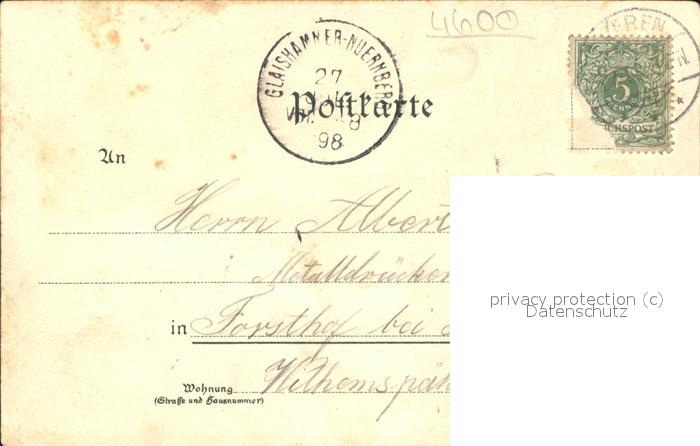 4600
GLAISHAMMER-NUERNBERG
27
98
Postkarte
5
PFENNIG
CHSPOST
An
Herrn Albert
Metalldrücker
in Forsthof bei
Wohnung
(Straße und Hausnummer)
privacy protection (c)
Datenschutz